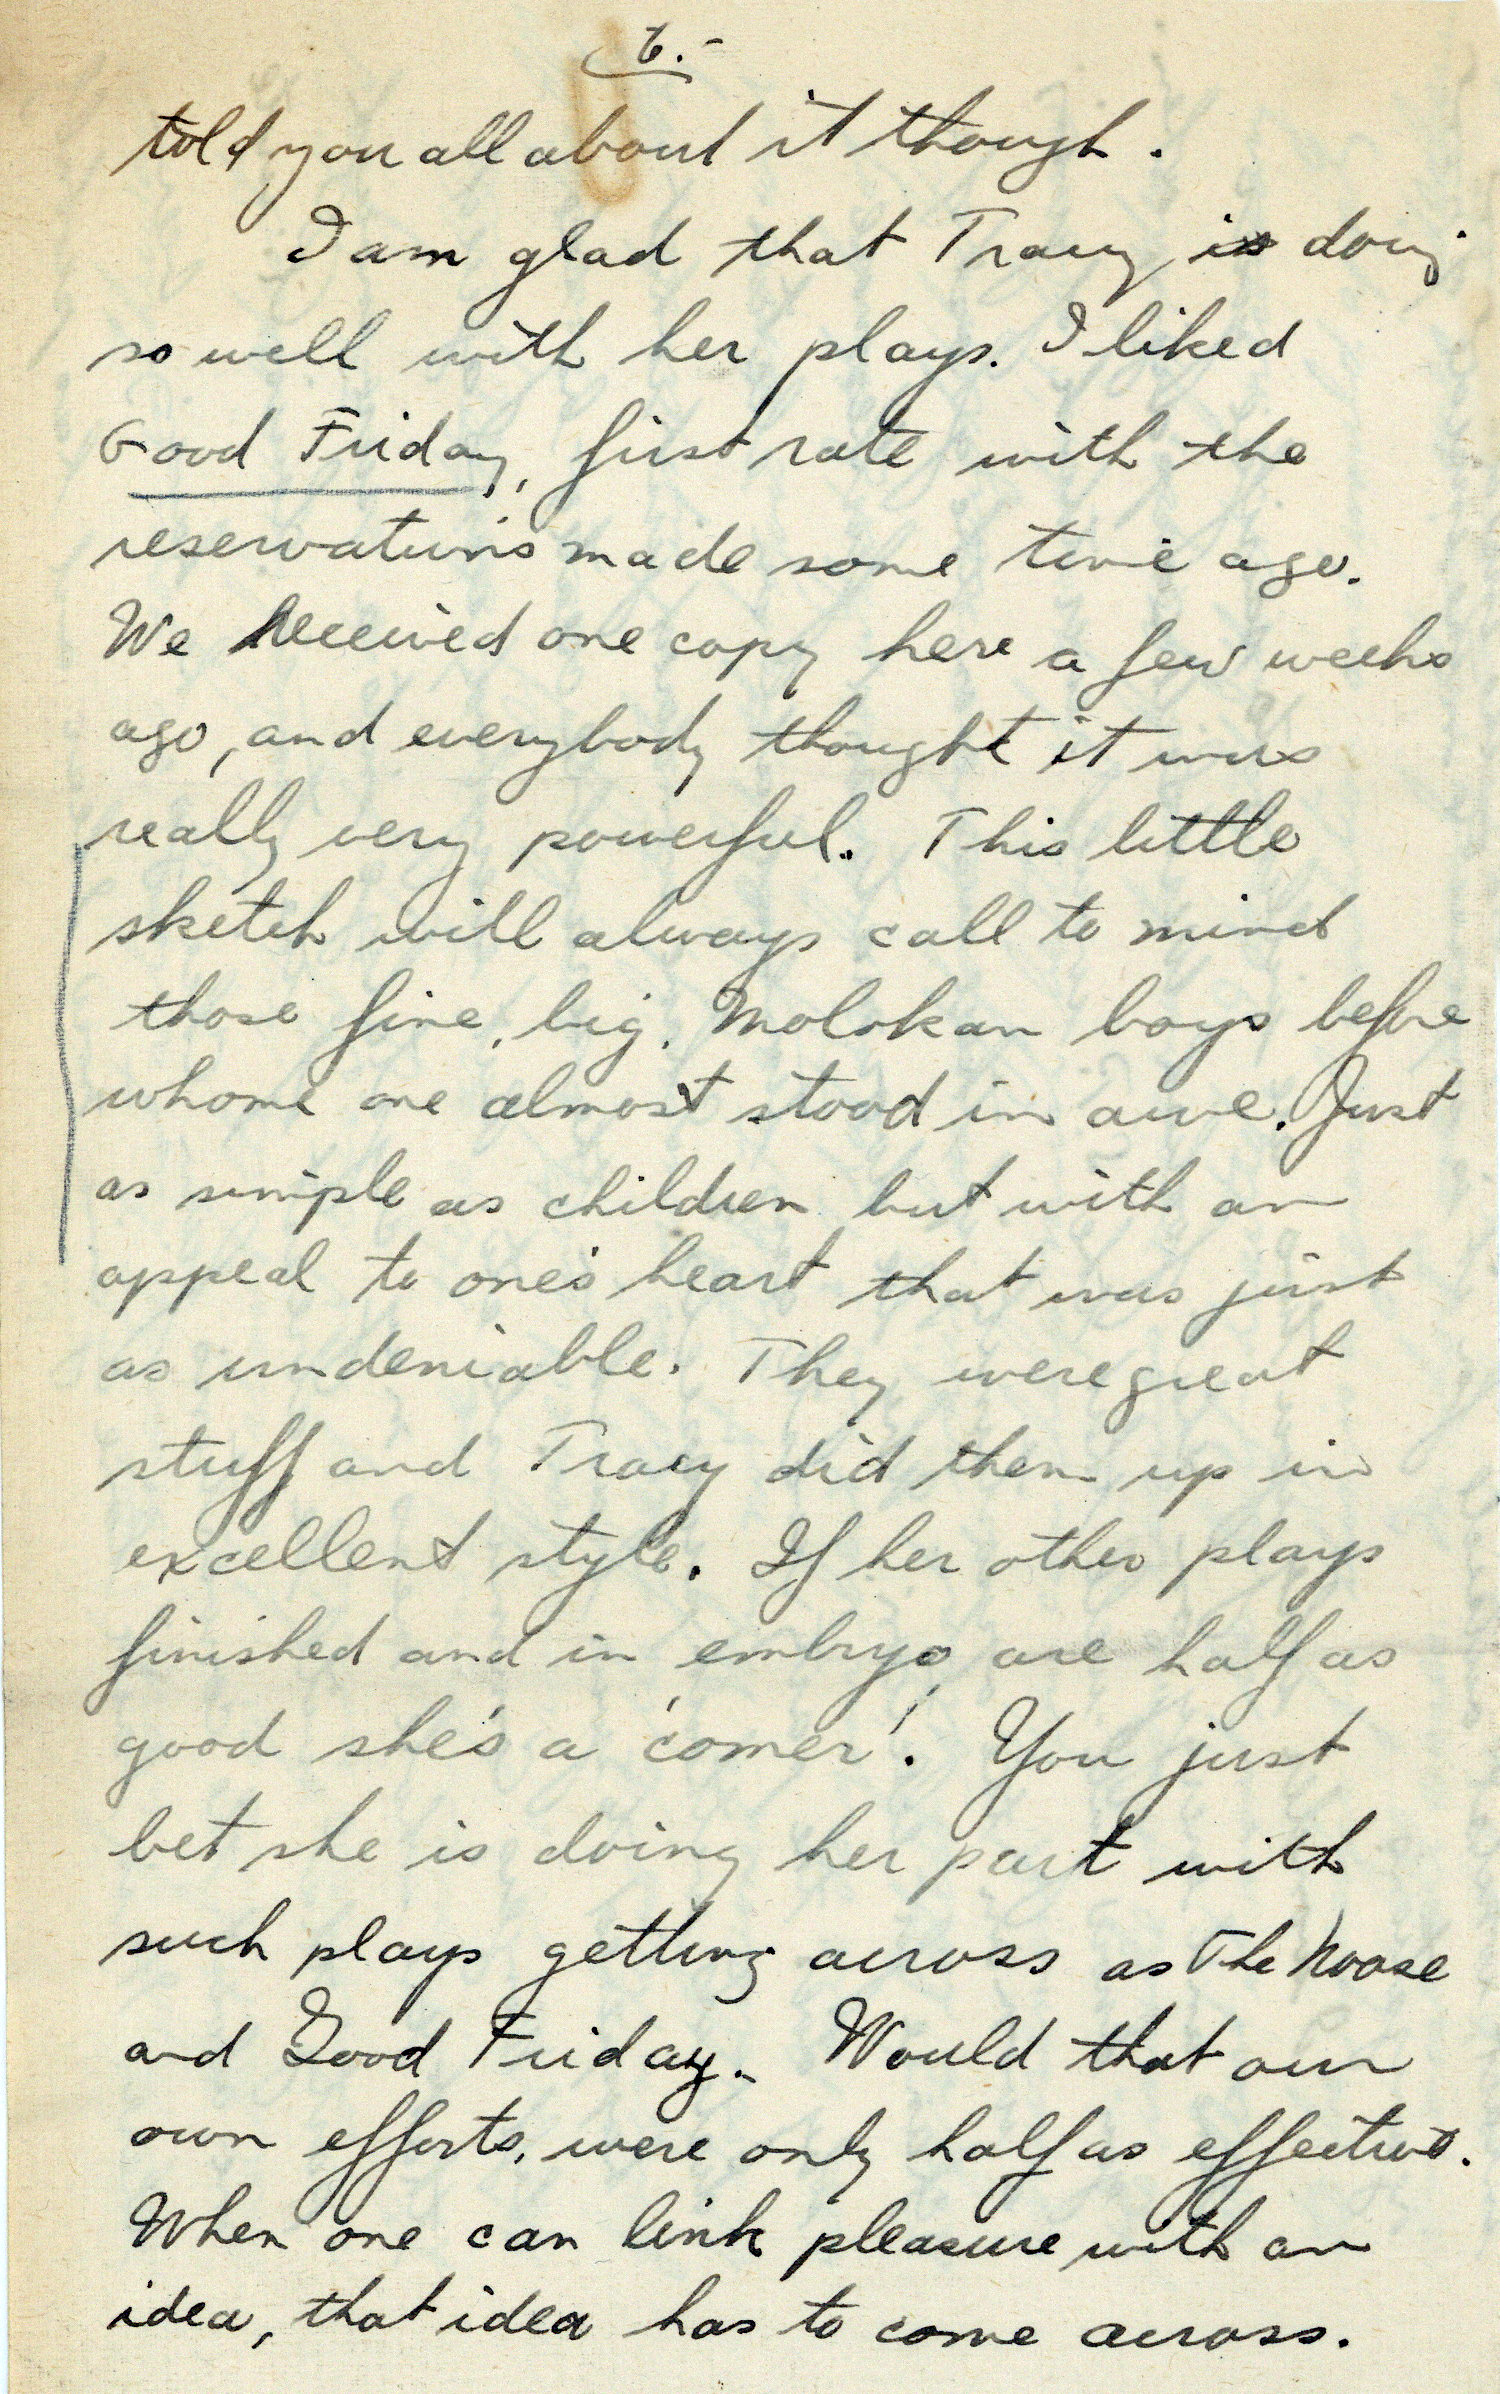 6.-
told you all about it though.
I am glad that Tracy is doing
so well with her plays. I liked
Good Friday, first rate with the
reservations made some time ago.
We received one copy here a few weeks
ago, and everybody thought it was
really very powerful. This little
sketch will always call to mind
those fine, big, Molokan boys before
whome one almost stood in awe. Just
as simple as children but with an
appeal to one's heart that was just
as undeniable. They were great
stuff and Tracy did them up in
excellent style. If her other plays
finished and in embryo, are half as
good she's a 'comer'. You just
bet she is doing her part with
such plays getting across as The Noose
and Good Friday. Would that our
own efforts, were only half as effective.
When one can link pleasure with an
idea, that idea has to come across.